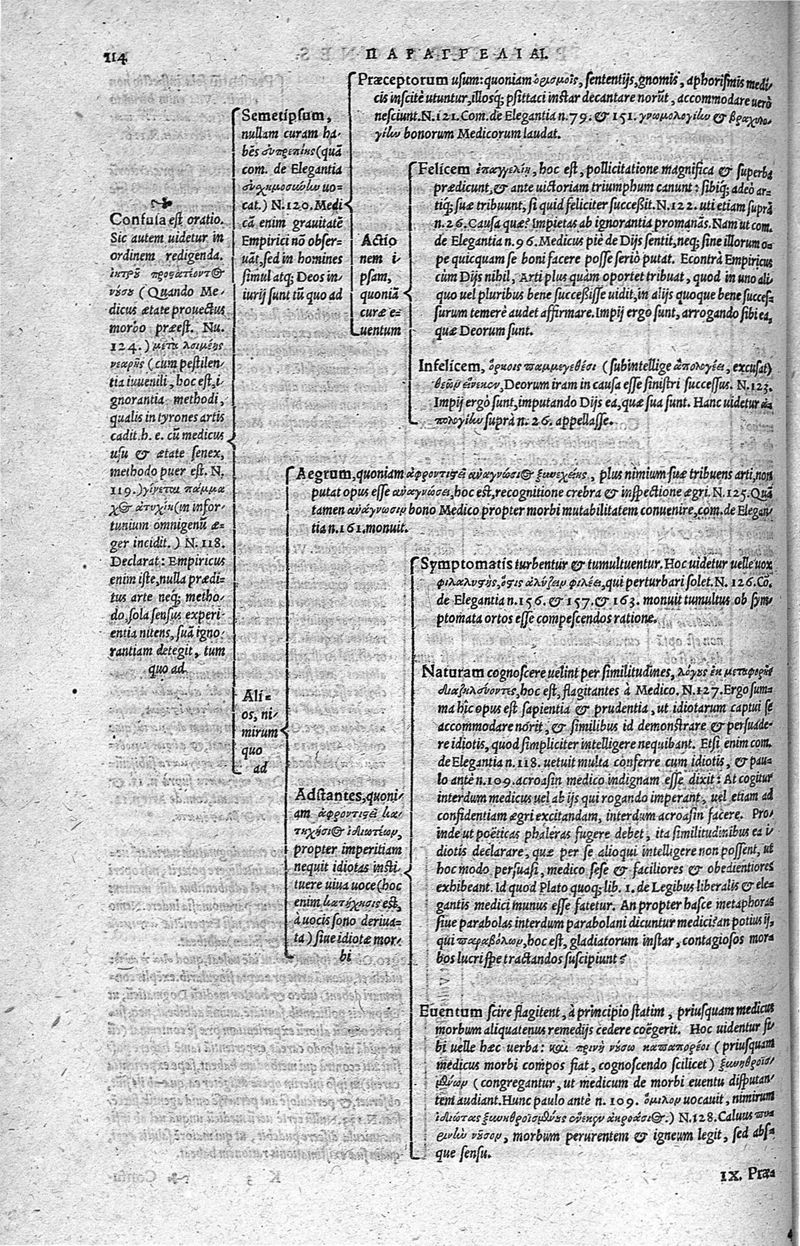 114
ΠΑΡΑΓΓΕΛΙΑΙ.
Confusa est oratio.
Sic autem uidetur in
ordinem redigenda.
(Quando Me-
dicus ætate prouectus
morbo præest. Nu.
124.)
(cum pestilen-
tia iuuenili, hoc est, i-
gnorantia methodi,
qualis in tyrones artis
cadit. h. e. cū medicus
usu & ætate senex,
methodo puer est. N.
119.)
(in infor-
tunium omnigenū æ-
ger incidit.) N. 118.
Declarat: Empiricus
enim iste, nulla prædi-
tus arte neq; metho-
do, sola sensus experi-
entia nitens, suā igno-
rantiam detegit, tum
quo ad
Semetipsum,
nullam curam ha-
bēs (quā
com. de Elegantia
uo-
cat.) N. 120. Medi-
cā enim grauitatē
Empirici nō obser-
uāt, sed in homines
simul atq; Deos in-
iurij sunt tū quo ad
Præceptorum usum: quoniam ὁρισμοῖς, sententijs, gnomis, aphorismis medi-
cis inscitè utuntur, illosq; psittaci instar decantare norūt, accommodare uerò
nesciunt. N. 121. Com. de Elegantia n. 79. & 151. &
bonorum Medicorum laudat.
Actio
nem i-
psam,
quoniā
curæ e-
uentum
Felicem hoc est, pollicitatione magnifica & superba
prædicunt, & ante uictoriam triumphum canunt: sibiq; adeò ar-
tiq; suæ tribunt, si quid feliciter successit. N. 122. uti etiam suprà
n. 26. Causa quæ? Impietas ab ignorantia promanās. Nam ut com.
de Elegantia n. 96. Medicus piè de Dijs sentit, neq; sine illorum o-
pe quicquam se boni facere posse seriò putat. Econtrà Empiricus
cùm Dijs nihil, Arti plus quàm oportet tribuat, quod in uno ali-
quo uel pluribus bene successisse uidit, in alijs quoque bene succes-
surum temerè audet affirmare. Impij ergo sunt, arrogando sibi ea,
quæ Deorum sunt.
Infelicem, ὅρκοις παμμεγεθέσι (subintellige ἀπολογέει, excusat)
Deorum iram in causa esse sinistri successus. N. 123.
Impij ergò sunt, imputando Dijs ea, quæ sua sunt. Hanc uidetur
suprà n. 26. appellasse.
Aegrum, quoniam plus nimium suæ tribuens arti, non
putat opus esse ἀναγνώσει, hoc est, recognitione crebra & inspectione ægri. N. 125. Quā
tamen bono Medico propter morbi mutabilitatem conuenire, com. de Elegan-
tia n. 161. monuit.
Ali-
os, ni-
mirum
quo
ad
Adstantes, quoni-
am
propter imperitiam
nequit idiotas insti-
tuere uiua uoce (hoc
enim est,
à uocis sono deriua-
ta) siue idiotæ mor-
bi
Symptomatis turbentur & tumultuentur. Hoc uidetur uelle uox
qui perturbari solet. N. 126. Cō.
de Elegantia n. 156. & 157. & 163. monuit tumultus ob sym-
ptomata ortos esse compescendos ratione.
Naturam cognoscere uelint per similitudines,
hoc est, flagitantes à Medico. N. 127. Ergo sum-
ma hîc opus est sapientia & prudentia, ut idiotarum captui se
accommodare nôrit, & similibus id demonstrare & persuade-
re idiotis, quod simpliciter intelligere nequibant. Etsi enim com.
de Elegantia n. 118. uetuit multa conferre cum idiotis, & pau-
lo antè n. 109. acroasin medico indignam esse dixit: At cogitur
interdum medicus uel ab ijs qui rogando imperant, uel etiam ad
confidentiam ægri excitandam, interdum acroasin facere. Pro-
inde ut poëticas phaleras fugere debet, ita similitudinibus ea i-
diotis declarare, quæ per se alioqui intelligere non possent, ut
hoc modo persuasi, medico sese & faciliores & obedientiores
exhibeant. Id quod Plato quoq; lib. 1. de Legibus liberalis & ele-
gantis medici munus esse fatetur. An propter hasce metaphoras
siue parabolas interdum parabolani dicuntur medici? an potius ij,
qui hoc est, gladiatorum instar, contagiosos mor-
bos lucri spe tractandos suscipiunt?
Euentum scire flagitent, à principio statim, priusquam medicus
morbum aliquatenus remedijs cedere coëgerit. Hoc uidentur si-
bi uelle hæc uerba: (priusquam
medicus morbi compos fiat, cognoscendo scilicet)
(congregantur, ut medicum de morbi euentu disputan-
tem audiant. Hunc paulo antè n. 109. uocauit, nimirum
N. 128. Caluus
morbum perurentem & igneum legit, sed abs-
que sensu.
IX. Præ-